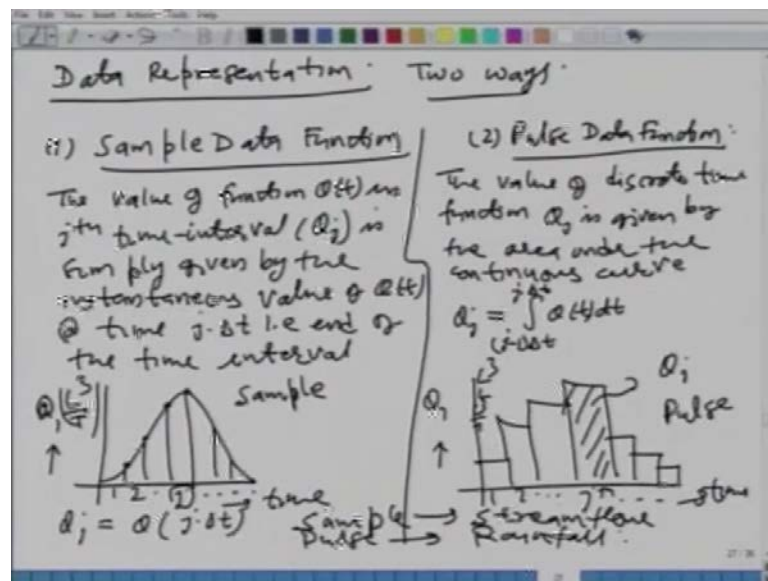 Data Representation: Two ways:
(1) Sample Data Function
The value of function Q(t) in
jth time-interval (Qj) is
simply given by the
instantaneous value of Q(t)
@ time j.Δt i.e end of
the time interval
Sample
1 2 j
time
Qj = Q(j.Δt)
(2) Pulse Data Function:
The value of discrete time
function Qj is given by
the area under the
continuous curve
Qj = ∫ Q(t)dt
(j-1)Δt
Qj
Pulse
1 2 j
time
Sample → Streamflow
Pulse → Rainfall.